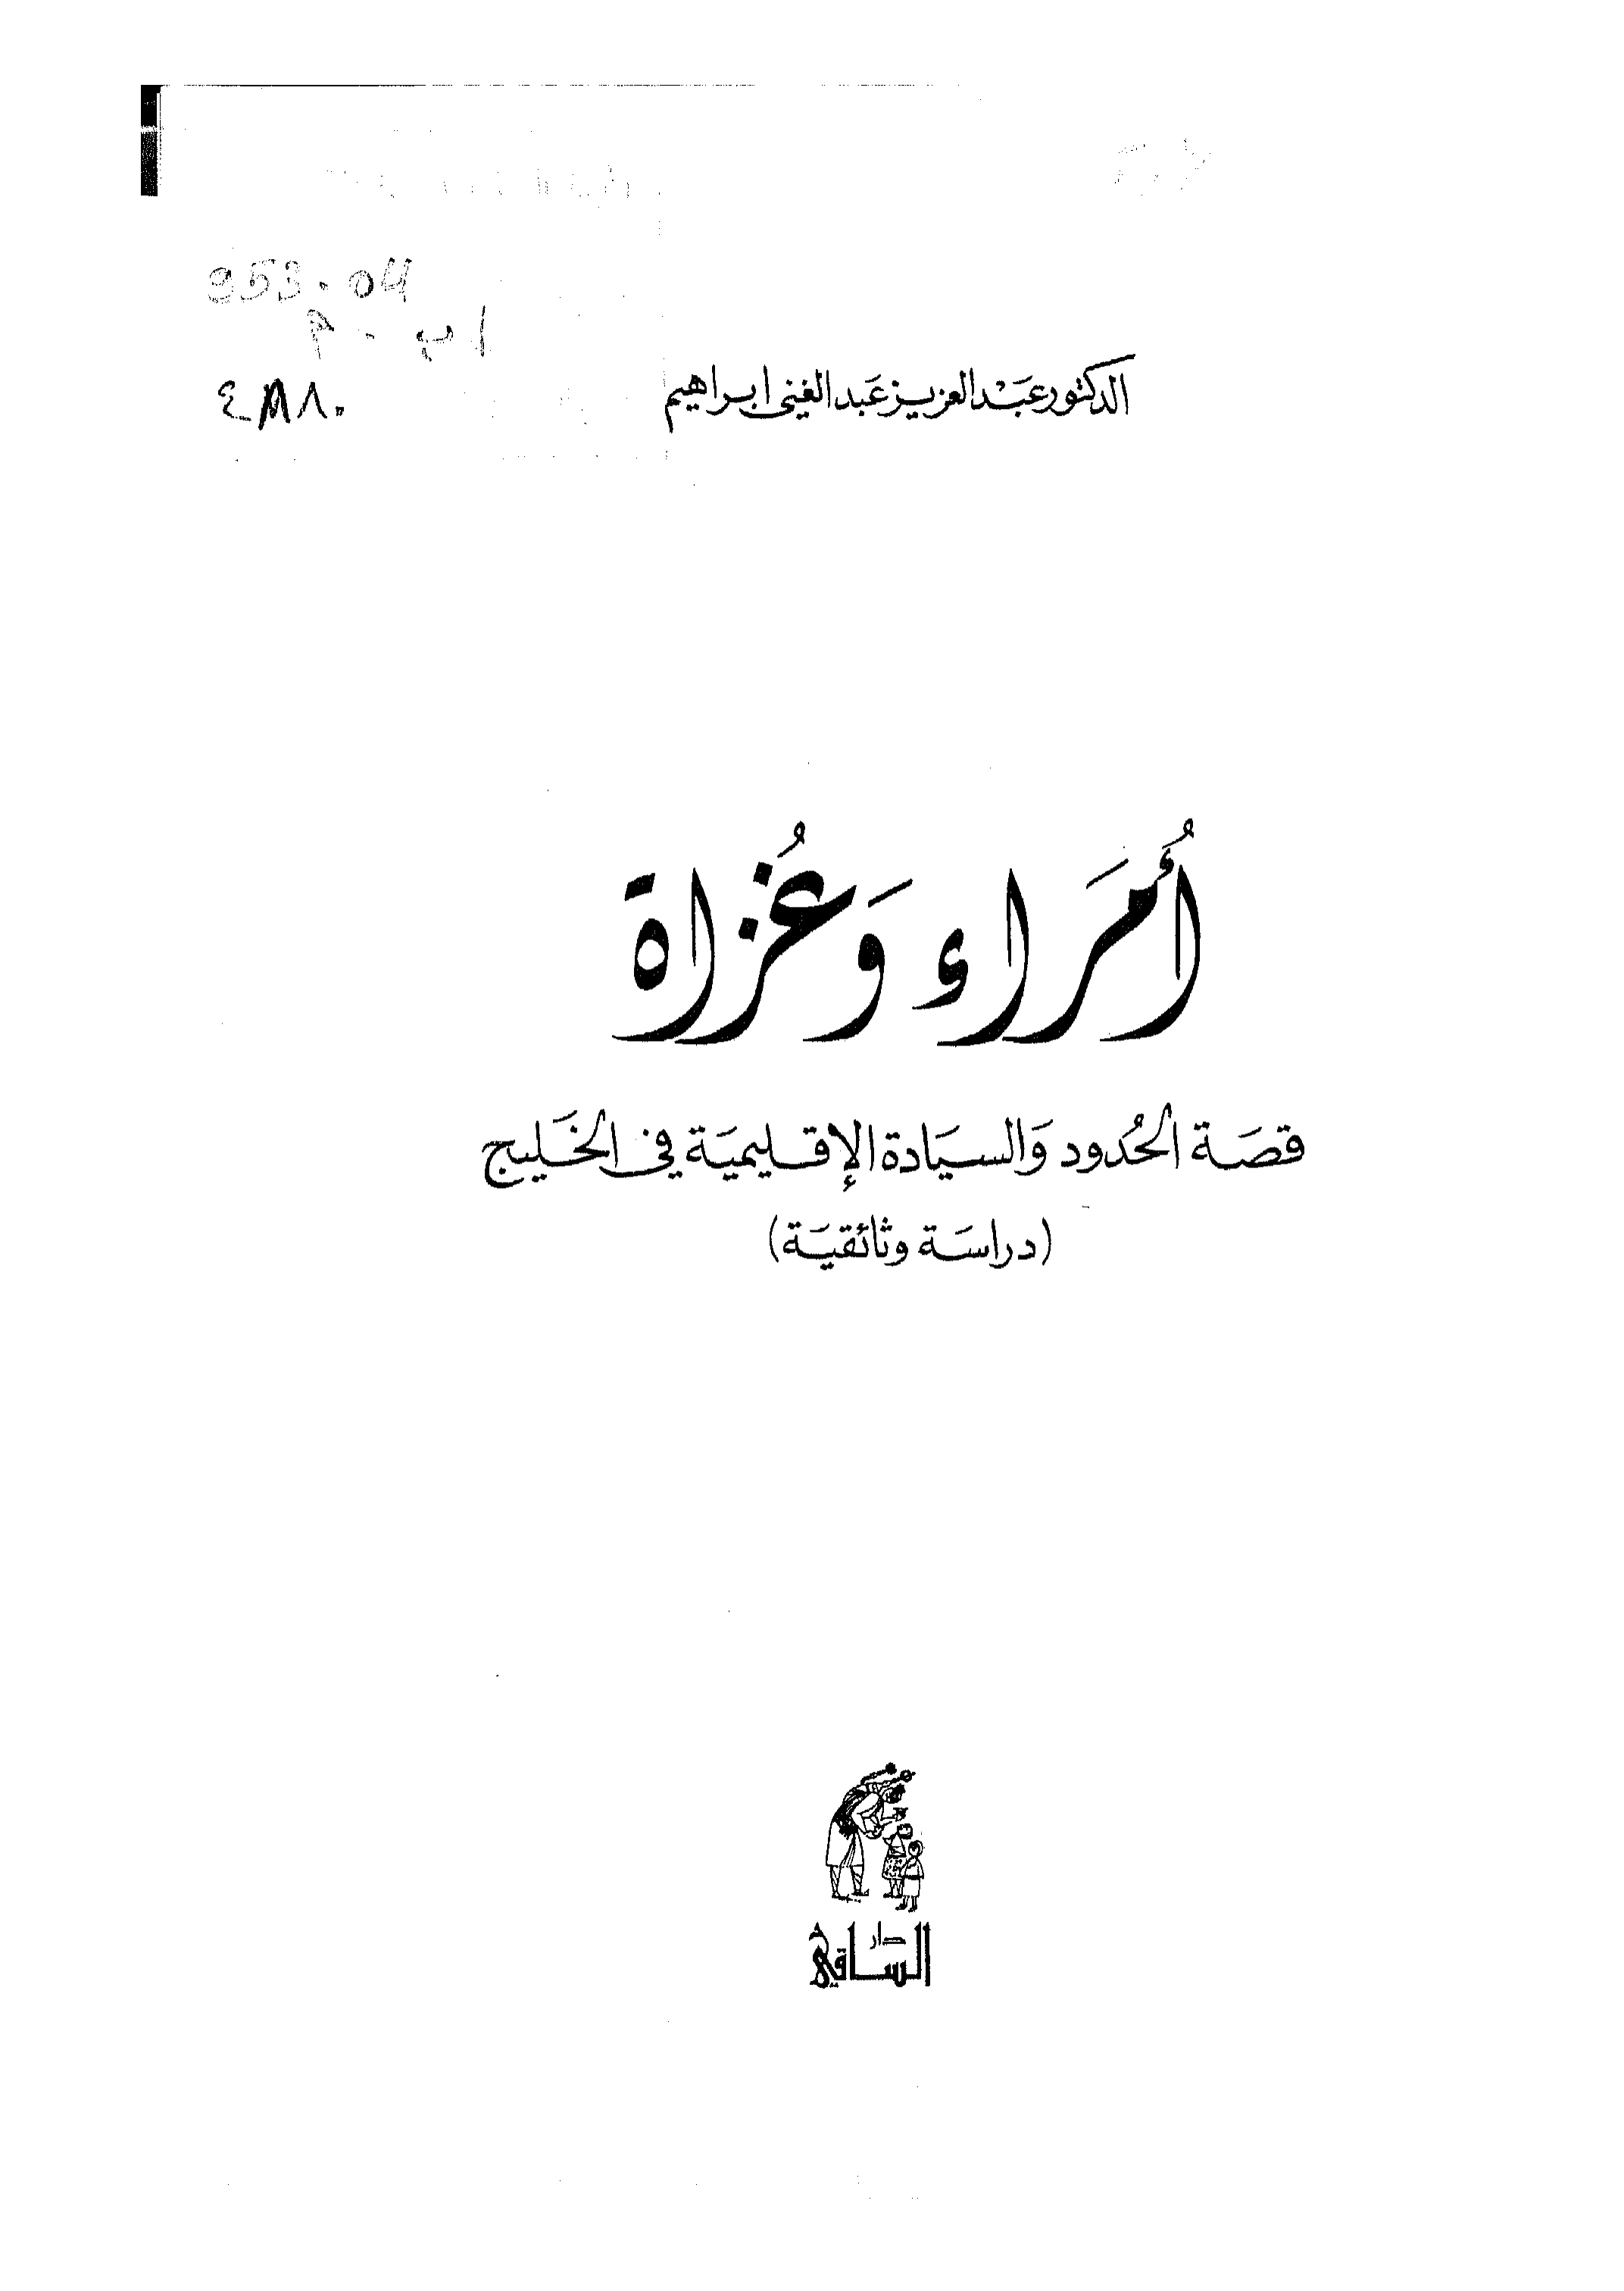 953.04
اب . م
الدكتور عبد العزيز عبد الغني ابراهيم
أُمَراء وَغُزاة
قصَة الحُدود وَالسيَادة الإقليميَة في الخَليج
(دراسَة وثائقيَة)
دار
الساقي